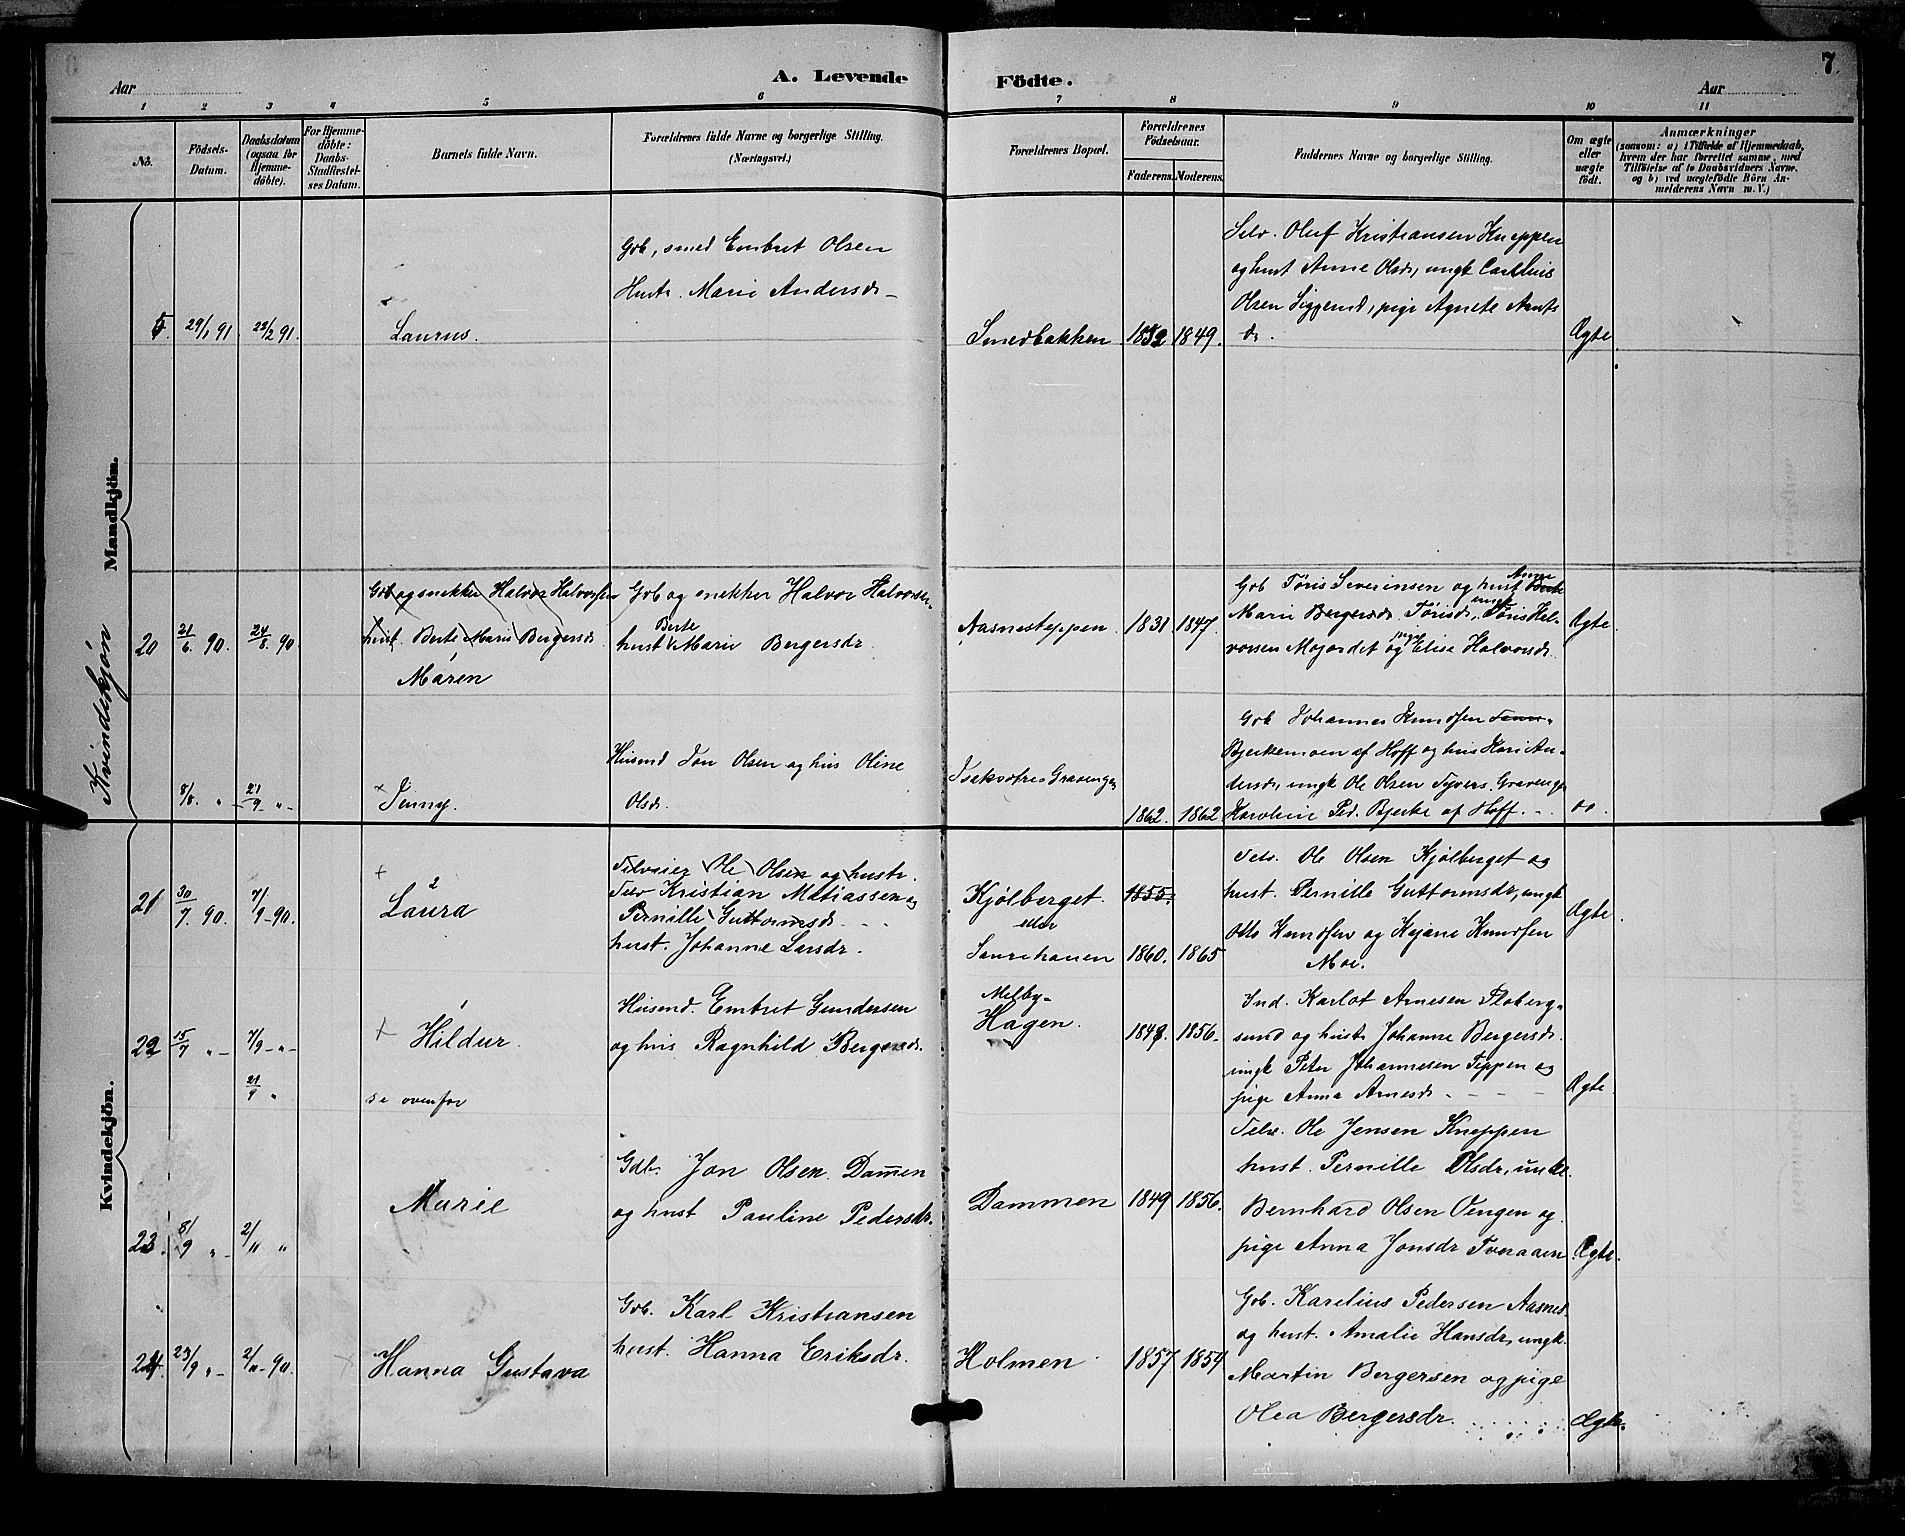 7.
A. Levende Födte.
Aar Aar
1 2 3 4 5 6 7 8 9 10 11
No.
Födsels-Datum.
Daabsdatum (ogsaa for Hjemme-döbte).
For Hjemme-döbte: Daabs-Stadfæstel-ses Datum.
Barnets fulde Navn.
Forældrenes fulde Navne og borgerlige Stilling.
(Næringsvei.)
Forældrenes Bopæl.
Forældrenes Födselsaar.
Faderens. Moderens.
Faddernes Navne og borgerlige Stilling.
Om ægte eller uægte födt.
Anmærkninger
(saasom: a) i Tilfælde af Hjemmedaab,
hvem der har forrettet samme, med
Tilföielse af to Daabsvidners Navne,
og b) ved uægtefödte Börn An-
melderens Navn m. V.)
Mandkjön.
5. 29/1 91 22/2 91. Laurus.
Grb, smed Embret Olsen
Hustr. Marie Andersdr
Smedbakken 1852 1849.
Selv. Oluf Kristiansen Kneppen
og hust Anne Olsdr, ungk Carelius
Olsen Siggerud, pige Agnete
dr. Ægte
Kvindekjøn
20 21/6 90. 24/8. 90
Grb og snekker Halvor Halvorsen
hust. Berte Marie Bergersdr
Maren
Grb og snekker Halvor Halvorsen
hust Berte Marie Bergersdr
Aasnesteppen. 1831 1847.
Grb Tøris Severinsen og hust Anne
Marie Bergersdr Tørisdr, ungk Tøris Hal-
vorsen Mojordet og pige Elise Halvorsdr. Ægte
8/8. " 21/9 " Jenny.
Husmd Jon Olsen og hus Oline
Olsdr.
Gravenge 1862. 1862
Grb Johannes Knudsen
Bjerkemoen af Hoff og hus Kari An-
dersdr, ungk Ole Olsen Gravenge
Karoline Ped. Bjerke af Hoff. do.
Kvindekjön.
21 30/7. 90. 7/9-90. Laura
Ole Olsen og hustr.
Selv Kristian Matiassen og
Pernille Guttormsdr
hust. Johanne Larsdr.
Kjølberget 1855.
eller
1860. 1865
Selv. Ole Olsen Kjølberget og
hust. Pernille Guttormsdr, ungk
Otto Knudsen og Kajane Knudsen
Moe. Ægte
22 15/7 " 7/9 " Hildur.
Husmd. Embret Gundersen
og hus Ragnhild Bergersdr.
Melby-
Hagen. 1848. 1856.
Ind. Karlot Arnesen Floberg-
sund og hustr Johanne Bergersdr.
ungk Peter Johannesen Teppen og
pige Anna Arnesdr Ægte
21/9 " se ovenfor
23. 8/9 " 2/11 " Marie
Gdb. Jon Olsen Dammen
og hust Pauline Pedersdr.
Dammen 1849 1856.
Selv. Ole Jensen Kneppen
hust. Pernille Olsdr, unk
Bernhard Olsen Vengen og
pige Anna Jonsdr Tveraaen Ægte.
24. 23/9 " 2/11-90. Hanna Gustava
Grb. Karl Kristiansen
hust. Hanna Eriksdr.
Holmen 1857 1859
Grb. Karelius Pedersen Aasnes
og hust. Amalie Hansdr, ungk.
Martin Bergersen og pige
Olea Bergersdr. Ægte.